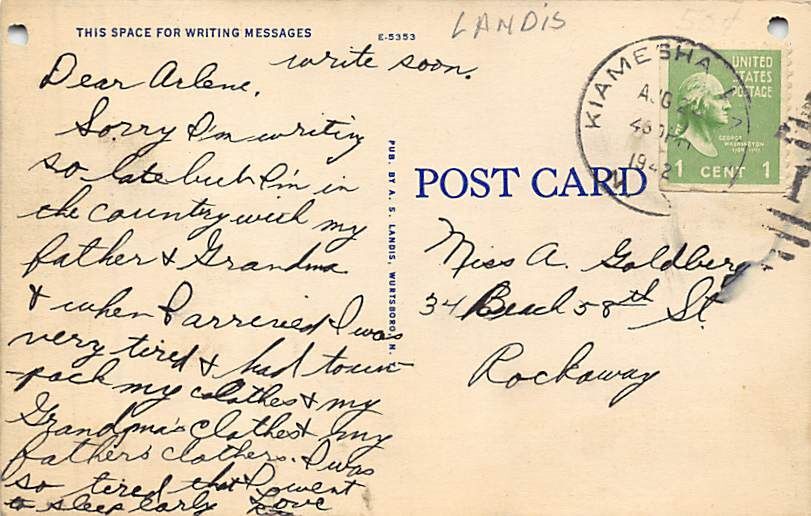 THIS SPACE FOR WRITING MESSAGES
E-5353
LANDIS
write soon.
Dear Arlene,
Sorry I'm writing
so late but I'm in
the country with my
father & Grandma
& when I arrived I was
very tired & had to un-
pack my clothes & my
Grandma's clothes & my
father's clothers. I was
so tired that I went
to sleep early Love
PUB. BY A. S. LANDIS, WURTSBORO, N. Y.
POST CARD
KIAMESHA
AUG
1942
UNITED
STATES
POSTAGE
GEORGE
WASHINGTON
1 CENT 1
Miss A. Goldberg
34 Beach 58th St.
Rockaway